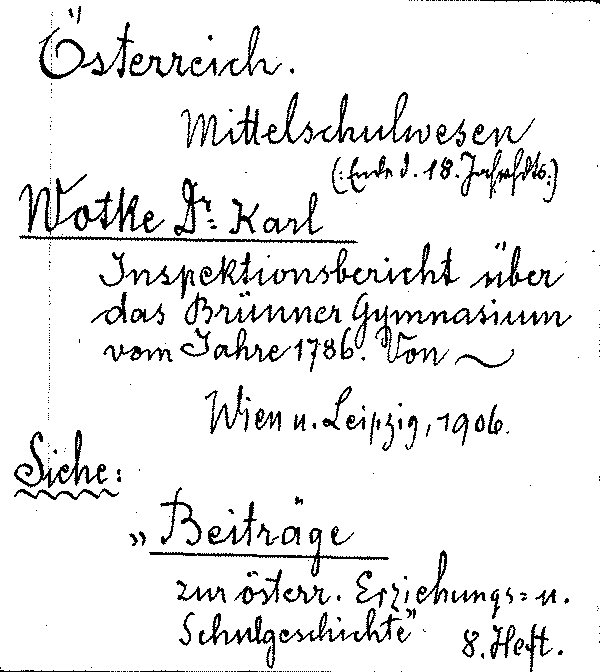 Österreich.
Mittelschulwesen
(: Ende d. 18. Jahrhdts. :)
Wotke Dr. Karl
Inspektionsbericht über
das Brünner Gymnasium
vom Jahre 1786. Von ~
Wien u. Leipzig, 1906.
Siehe:
„Beiträge
zur österr. Erziehungs= u.
Schulgeschichte"
8. Heft.